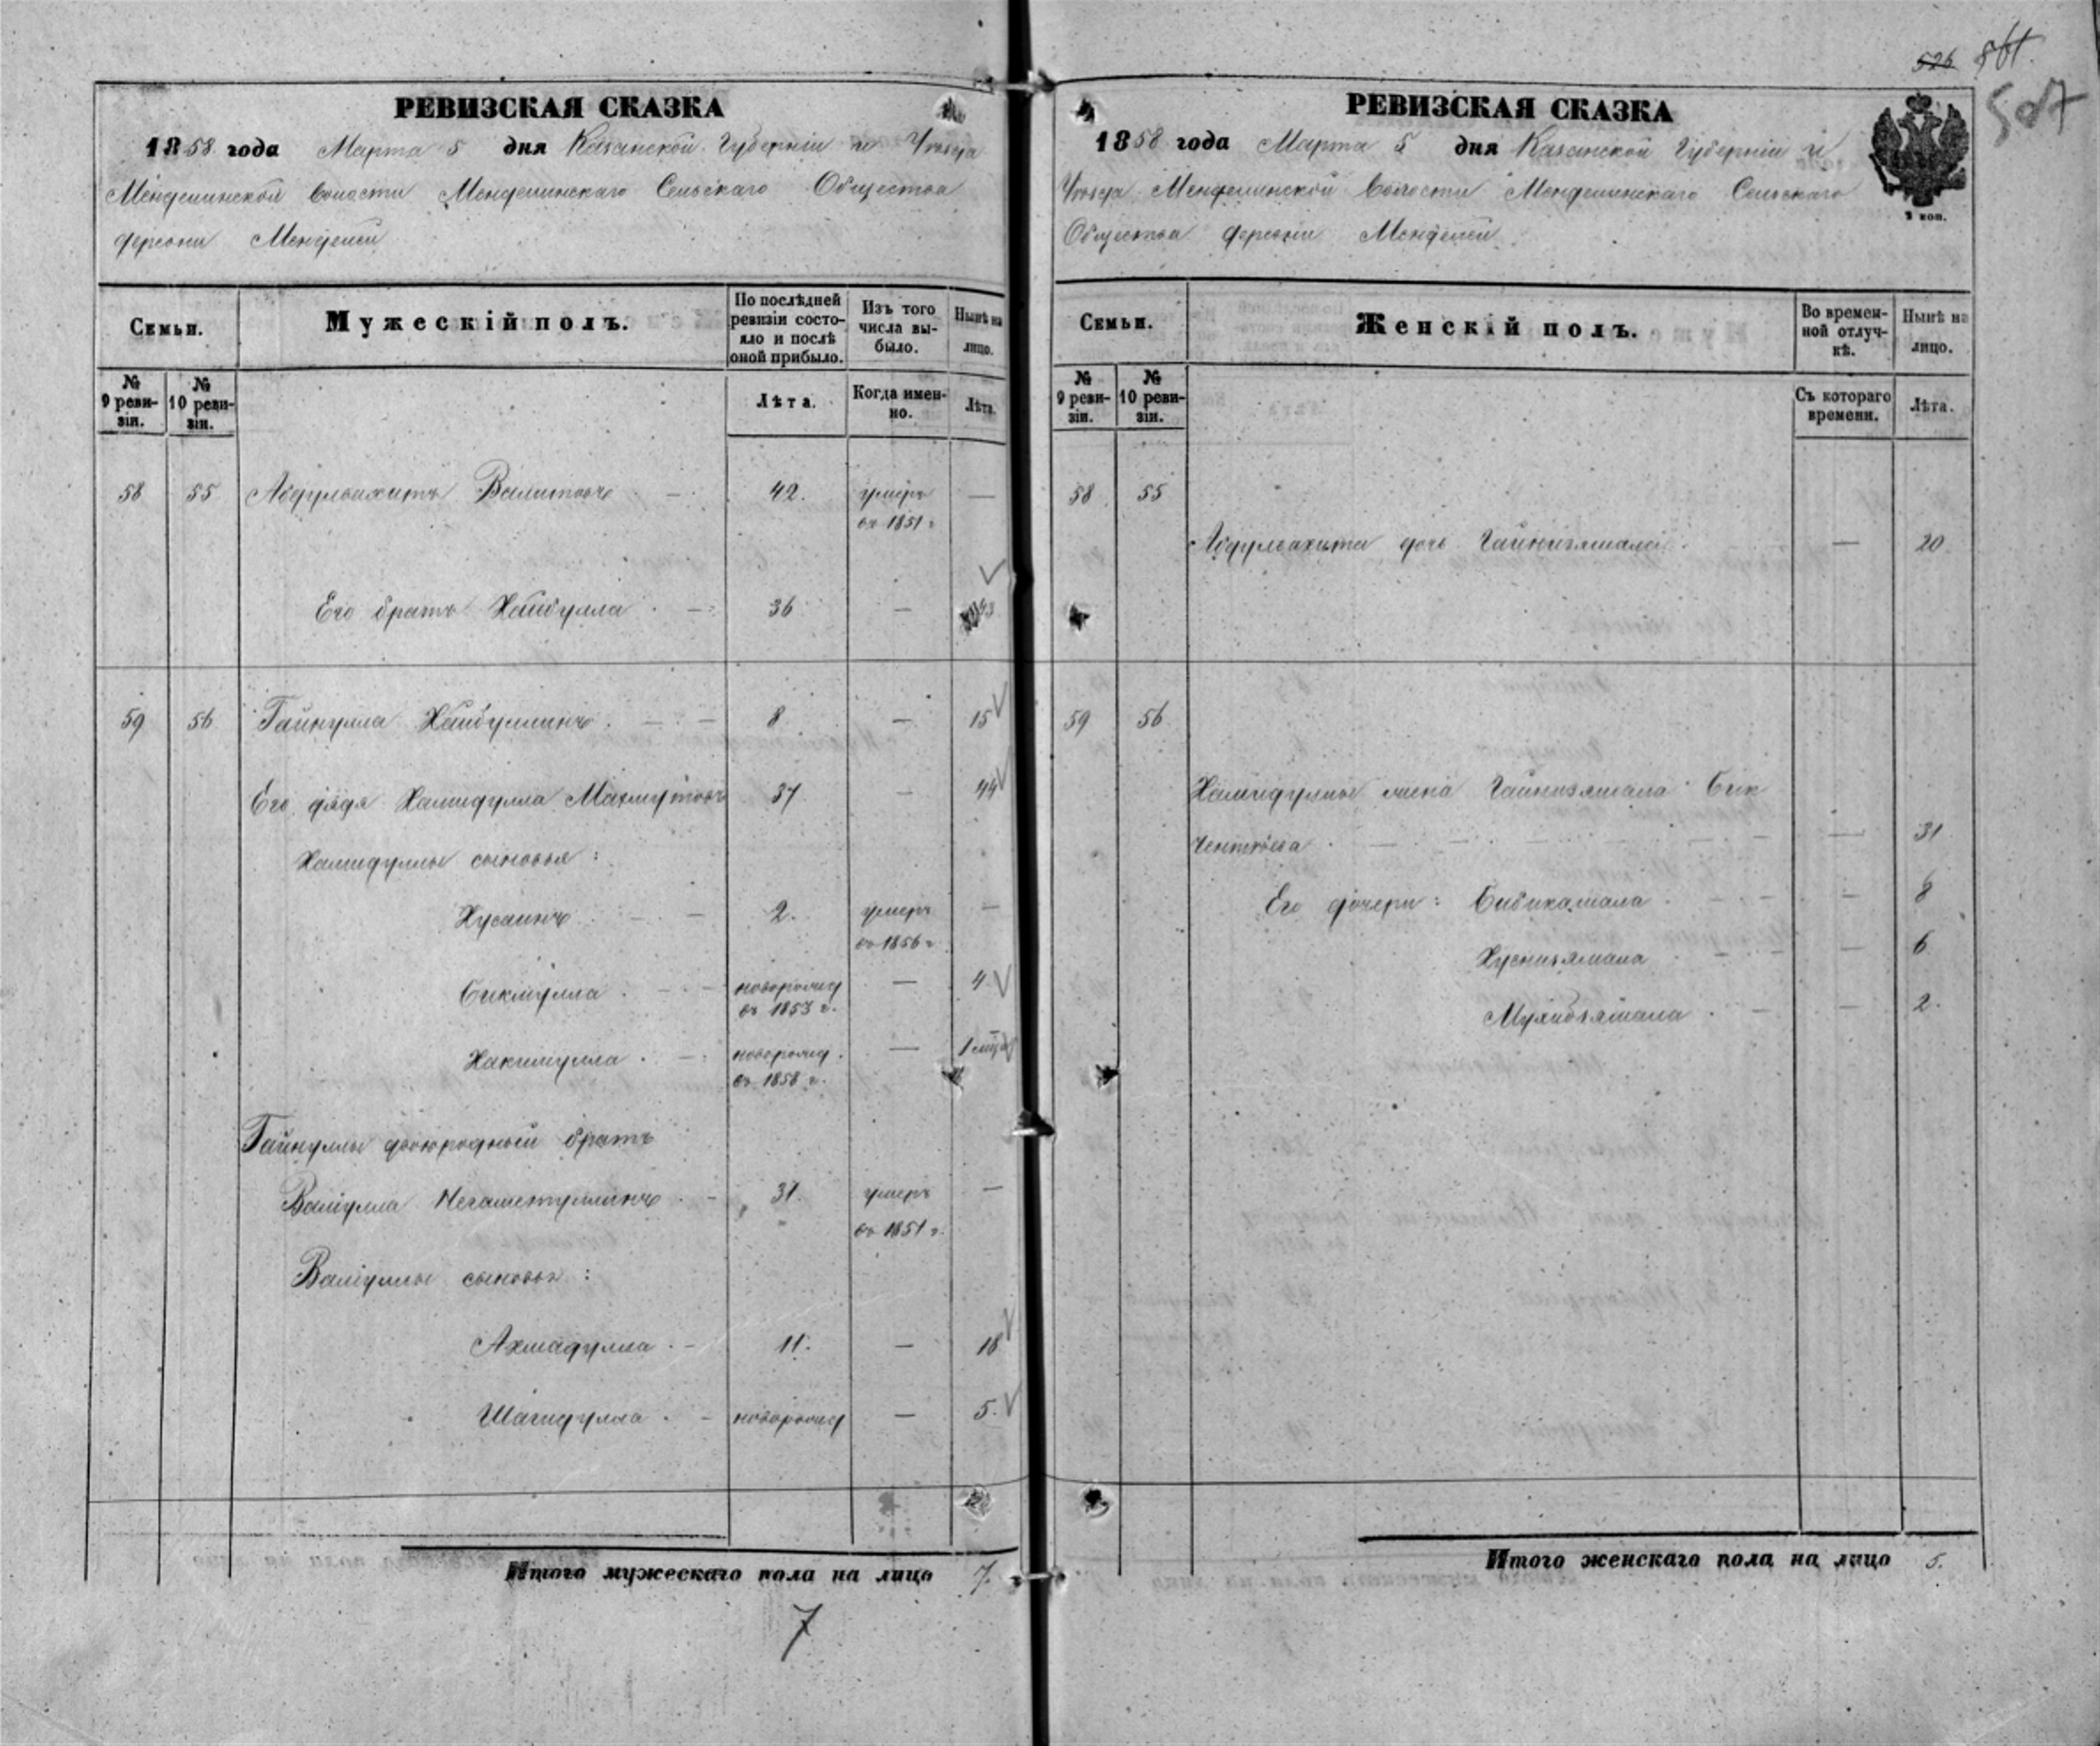 526 561.
507
РЕВИЗСКАЯ СКАЗКА
1858 года Марта 5 дня Казанской Губерніи и Уѣзда
Менделинской Волости Менделинскаго Сельскаго Общества
деревни Менделей
Семьи.
Мужескій полъ.
По послѣдней ревизіи состояло и послѣ оной прибыло.
Изъ того числа выбыло.
Нынѣ на лицо.
№ 9 ревизіи.
№ 10 ревизіи.
Лѣта.
Когда именно.
Лѣта.
58 55 Абдулвахитъ Валитовъ 42. умеръ въ 1851 г. —
Его братъ Хайбулла 36 — 43
59 56 Гайнулла Хайбуллинъ 8 — 15
Его дядя Хамидулла Махмутовъ 37 — 44
Хамидуллы сыновья:
Хусаинъ 2. умеръ въ 1856 г. —
Бикмулла новорожд въ 1853 г. — 4
Хакимулла новорожд. въ 1858 г. — 1
Гайнуллы двоюродный братъ
Валіулла Негаметуллинъ 31. умеръ въ 1851 г. —
Валіуллы сыновья:
Ахмадулла 11. — 18
Шагидулла новорожд — 5.
Итого мужескаго пола на лицо 7.
7
РЕВИЗСКАЯ СКАЗКА
1858 года Марта 5 дня Казанской Губерніи и
Уѣзда Менделинской Волости Менделинскаго Сельскаго
Общества деревни Менделей
2 коп.
Семьи.
Женскій полъ.
Во временной отлучкѣ.
Нынѣ на лицо.
№ 9 ревизіи.
№ 10 ревизіи.
Съ котораго времени.
Лѣта.
58 55
Абдулвахита дочь — 20
59 56
Хамидуллы жена Гайнизямала Бик
— 31
Его дочери: Бибикамала — 8
Хуснизямала — 6
— 2.
Итого женскаго пола на лицо 5.